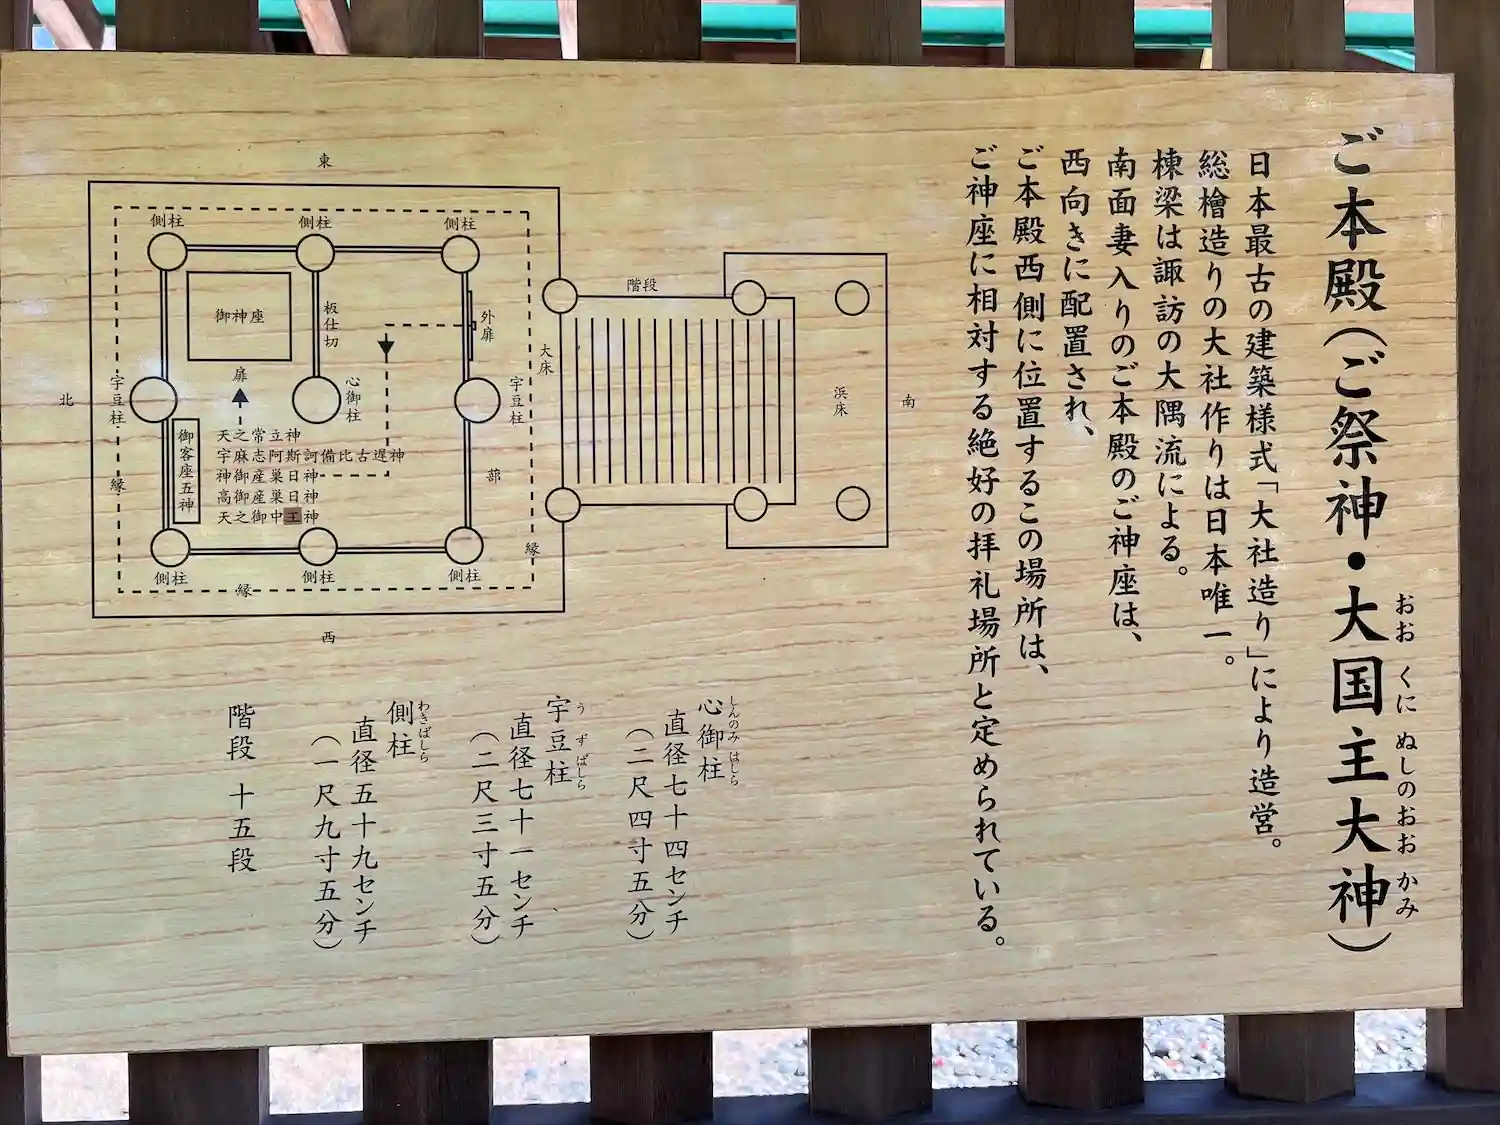 ご本殿(ご祭神・大国主大神)
おお くに ぬしのおお かみ
日本最古の建築様式「大社造り」により造営。
総檜造りの大社作りは日本唯一。
棟梁は諏訪の大隅流による。
南面妻入りのご本殿のご神座は、
西向きに配置され、
ご本殿西側に位置するこの場所は、
ご神座に相対する絶好の拝礼場所と定められている。
東
側柱
側柱
側柱
御神座
板仕切
外扉
階段
大床
扉
北
宇豆柱
心御柱
宇豆柱
浜床
南
天之常立神
宇麻志阿斯訶備比古遅神
神御産巣日神
高御産巣日神
天之御中主神
御客座五神
蔀
縁
縁
側柱
側柱
側柱
縁
西
心御柱
しんのみ はしら
直径七十四センチ
(二尺四寸五分)
宇豆柱
うずばしら
直径七十一センチ
(二尺三寸五分)
側柱
わきばしら
直径五十九センチ
(一尺九寸五分)
階段 十五段